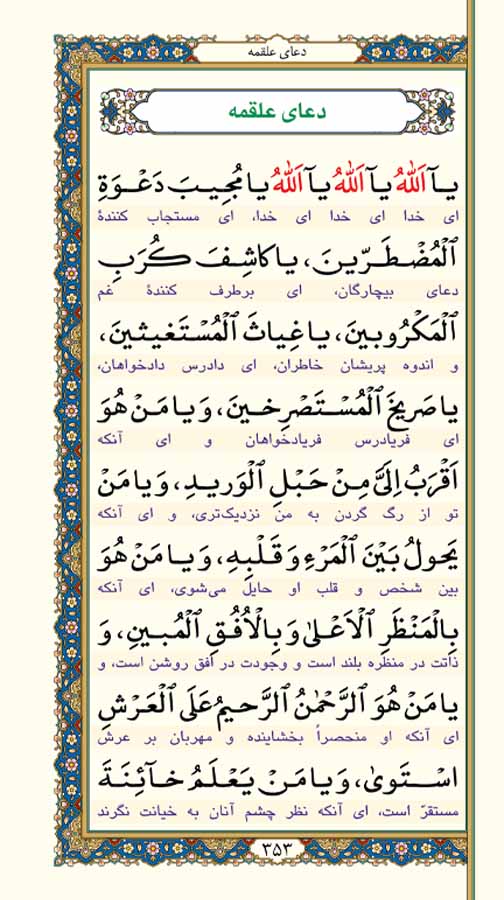 دعای علقمه
دعای علقمه
یـآ اَللّٰهُ یـآ اَللّٰهُ یـآ اَللّٰهُ یا مُجیبَ دَعْـوَةِ
ای خدا ای خدا ای خدا، ای مستجاب کنندهٔ
الْمُضْـطَـرّینَ، یـا کاشِفَ کُرَبِ
دعای بیچارگان، ای برطرف کنندهٔ غم
الْمَکْرُوبینَ، یا غِیاثَ الْمُسْتَغیثینَ،
و اندوه پریشان خاطران، ای دادرس دادخواهان،
یا صَریخَ الْمُسْتَصْرِخینَ، وَ یا مَنْ هُوَ
ای فریادرس فریادخواهان و ای آنکه
اَقْرَبُ اِلَیَّ مِنْ حَبْلِ الْوَریدِ، وَ یا مَنْ
تو از رگ گردن به من نزدیک‌تری، و ای آنکه
یَحُولُ بَیْنَ الْمَرْءِ وَ قَلْبِهِ، وَ یا مَنْ هُوَ
بین شخص و قلب او حایل می‌شوی، ای آنکه
بِالْمَنْظَرِ الْاَعْلیٰ وَ بِالْاُفُقِ الْمُبینِ، وَ
ذاتت در منظره بلند است و وجودت در افق روشن است، و
یا مَنْ هُوَ الرَّحْمٰنُ الرَّحیمُ عَلَی الْعَرْشِ
ای آنکه او منحصراً بخشاینده و مهربان بر عرش
اسْـتَویٰ، وَ یا مَنْ یَعْلَمُ خـآئِنَةَ
مستقرّ است، ای آنکه نظر چشم آنان به خیانت نگرند
۳۵۳